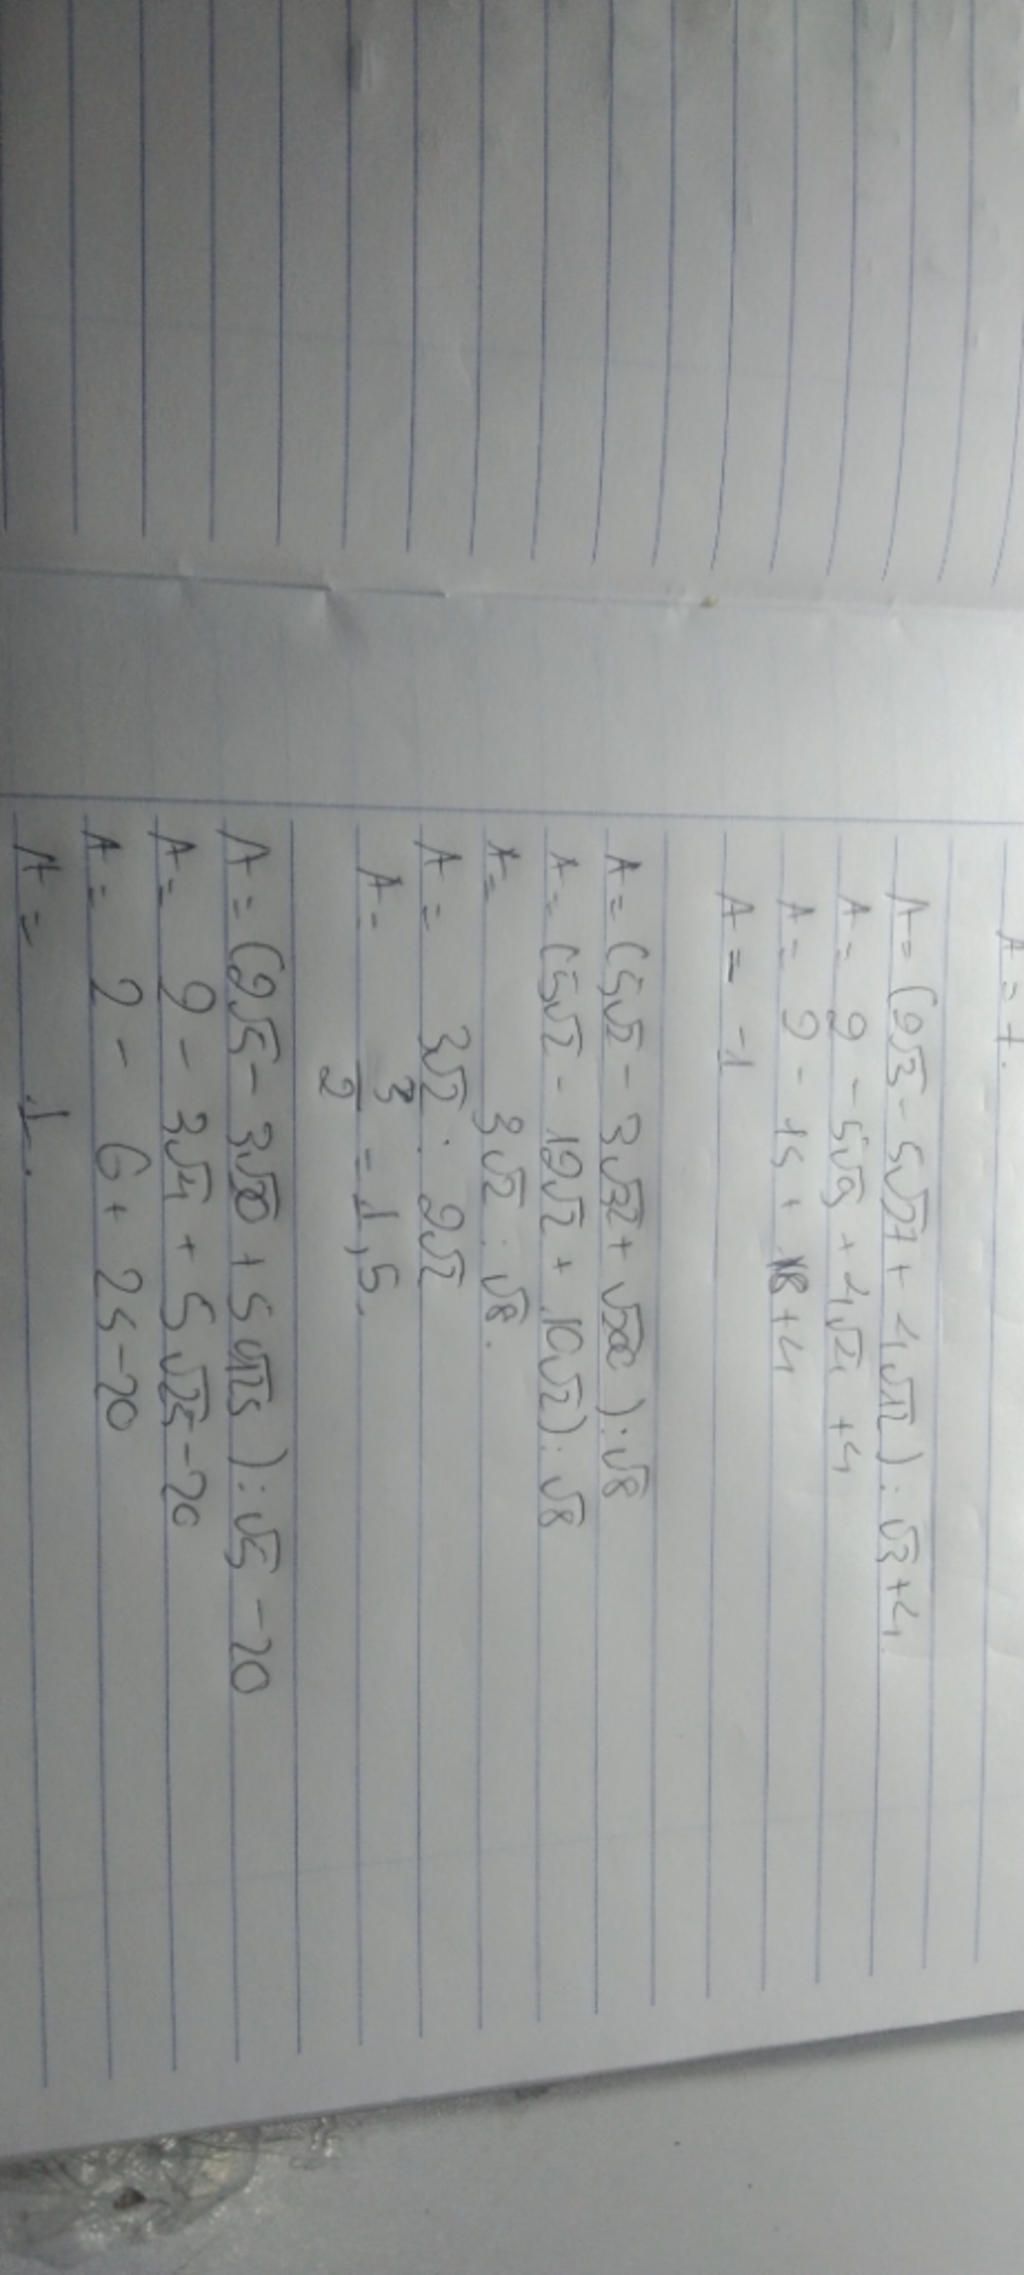 A = 7.
A = (2√3 - 5√27 + 4√12) : √3 + 4
A = 2 - 5√9 + 4√4 + 4
A = 2 - 15 + 8 + 4
A = -1
A = (5√2 - 3√32 + √200) : √8
A = (5√2 - 12√2 + 10√2) : √8
A = 3√2 : √8.
A = 3√2 : 2√2
A = 3/2 = 1,5.
A = (2√5 - 3√20 + 5√125) : √5 - 20
A = 2 - 3√4 + 5√25 - 20
A = 2 - 6 + 25 - 20
A = 1.